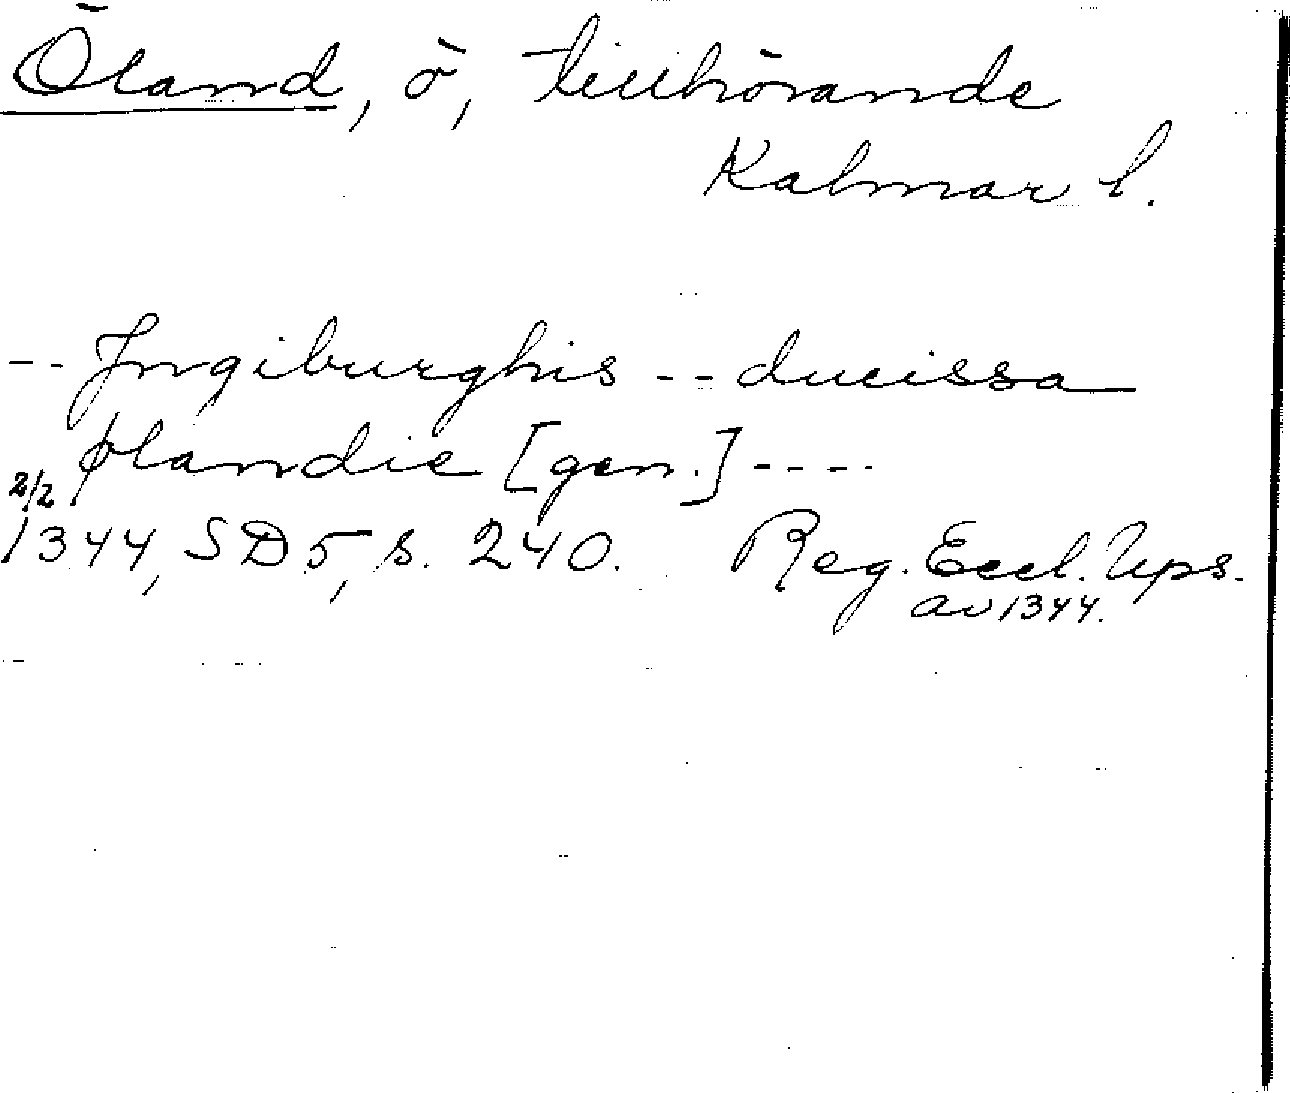 Öland, ö, tillhörande
Kalmar l.
-- Ingiburghis -- ducissa
Ølandie [gen.] ----
2/2
1344, SD 5, s. 240. Reg. Eccl. Ups.
av 1344.